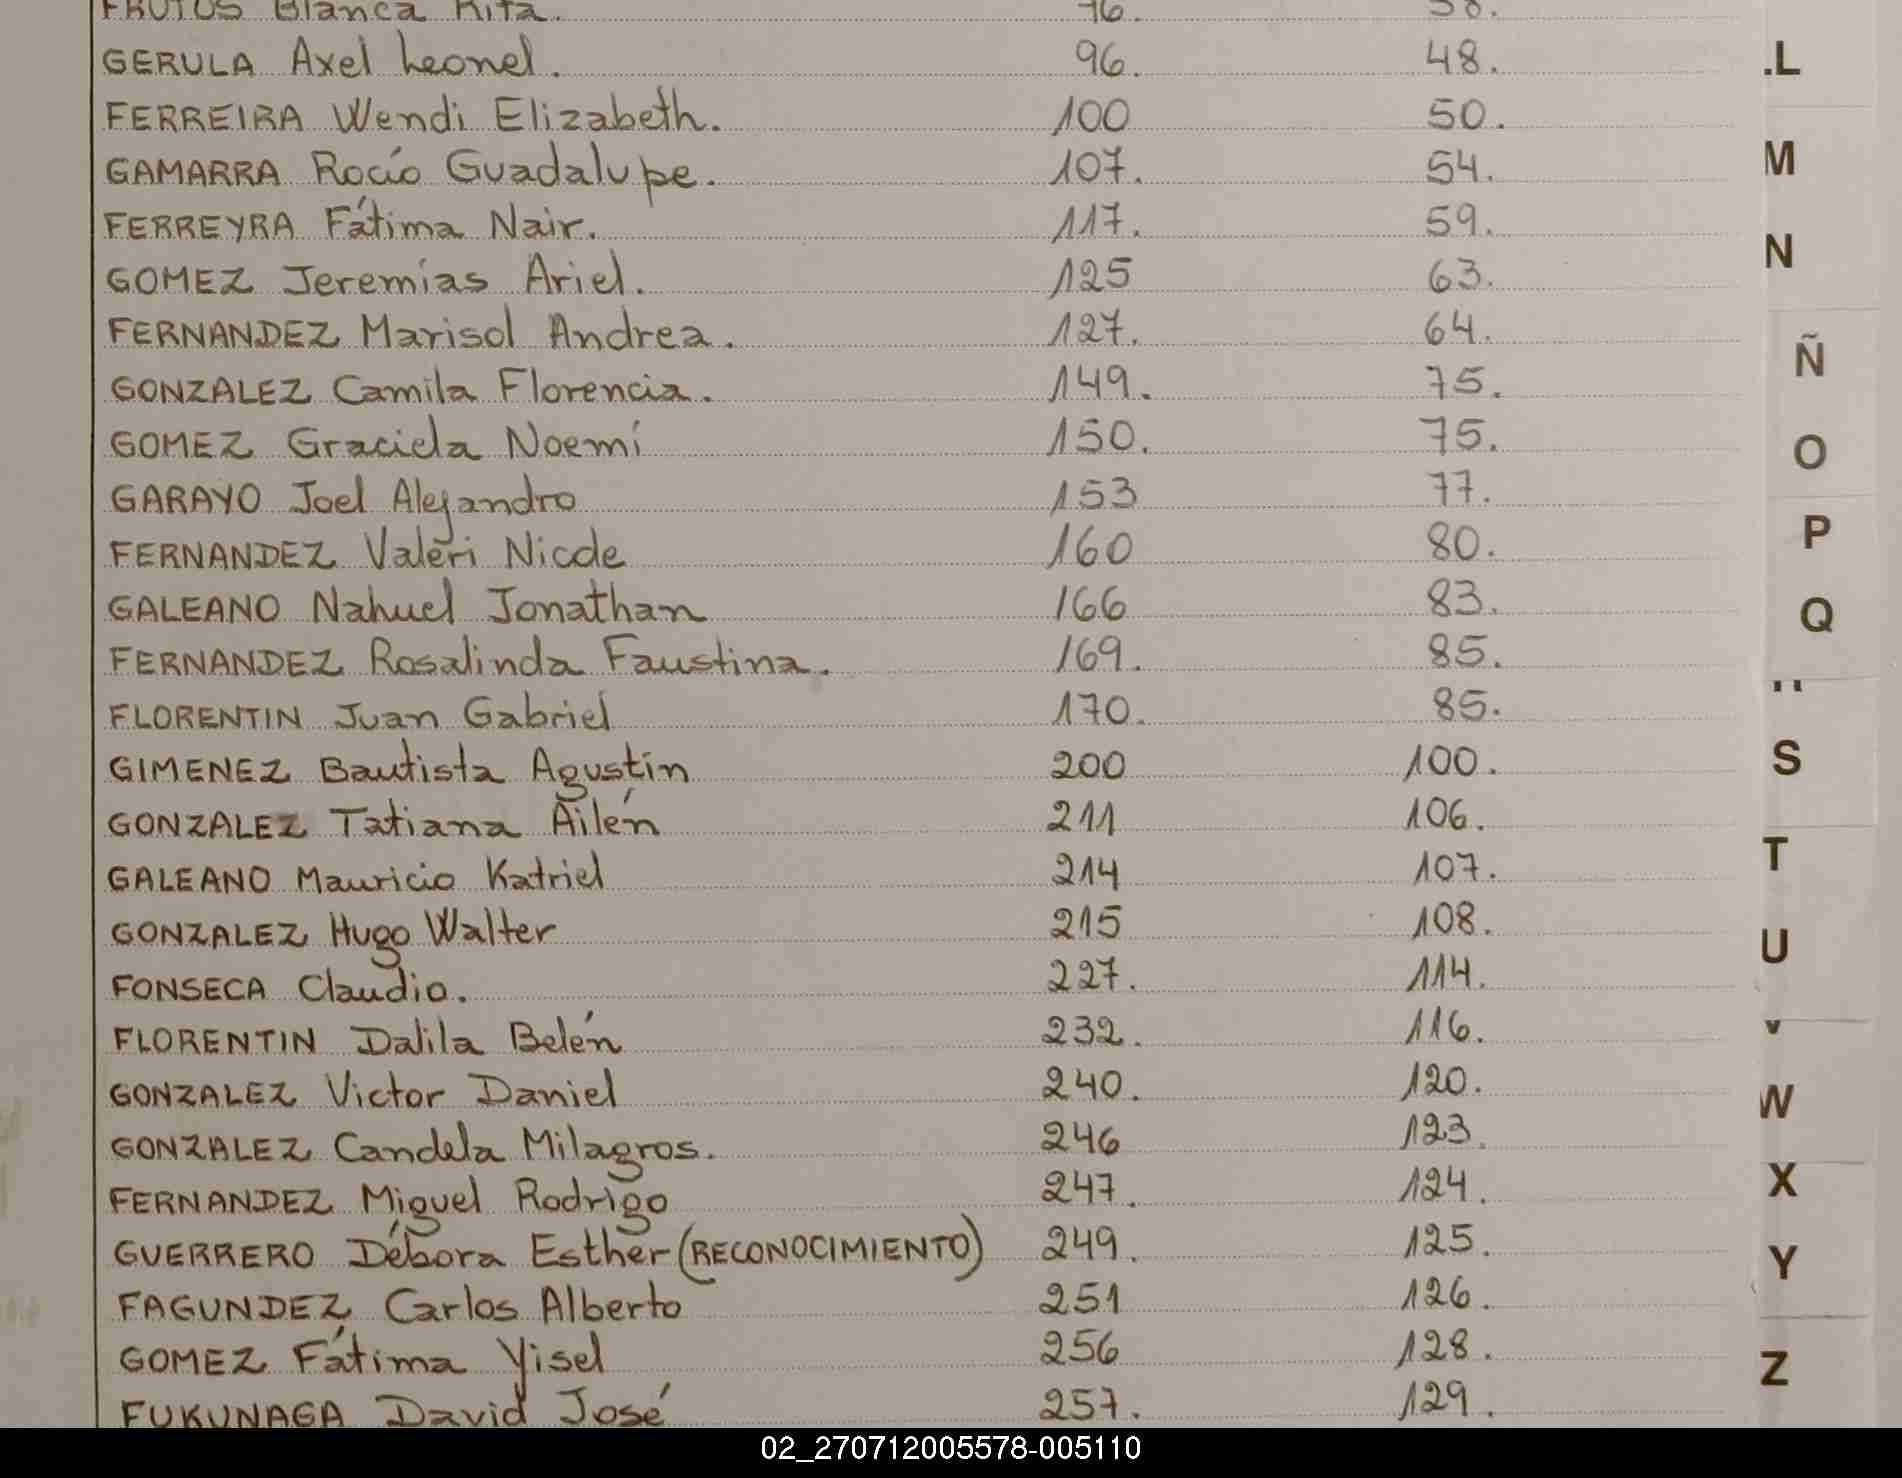 FRUTOS Blanca Rita. 76. 38.
GERULA Axel Leonel. 96. 48.
L
FERREIRA Wendi Elizabeth. 100 50.
GAMARRA Rocío Guadalupe. 107. 54.
M
FERREYRA Fátima Nair. 117. 59.
N
GOMEZ Jeremías Ariel. 125 63.
FERNANDEZ Marisol Andrea. 127. 64.
Ñ
GONZALEZ Camila Florencia. 149. 75.
GOMEZ Graciela Noemí 150. 75.
O
GARAYO Joel Alejandro 153 77.
P
FERNANDEZ Valeri Nicole 160 80.
GALEANO Nahuel Jonathan 166 83.
Q
FERNANDEZ Rosalinda Faustina. 169. 85.
FLORENTIN Juan Gabriel 170. 85.
GIMENEZ Bautista Agustín 200 100.
S
GONZALEZ Tatiana Ailén 211 106.
T
GALEANO Mauricio Katriel 214 107.
GONZALEZ Hugo Walter 215 108.
U
FONSECA Claudio. 227. 114.
FLORENTIN Dalila Belén 232. 116.
V
GONZALEZ Victor Daniel 240. 120.
W
GONZALEZ Candela Milagros. 246 123.
FERNANDEZ Miguel Rodrigo 247. 124.
X
GUERRERO Débora Esther (RECONOCIMIENTO) 249. 125.
Y
FAGUNDEZ Carlos Alberto 251 126.
GOMEZ Fátima Yisel 256 128.
Z
FUKUNAGA David José 257. 129.
02_270712005578-005110